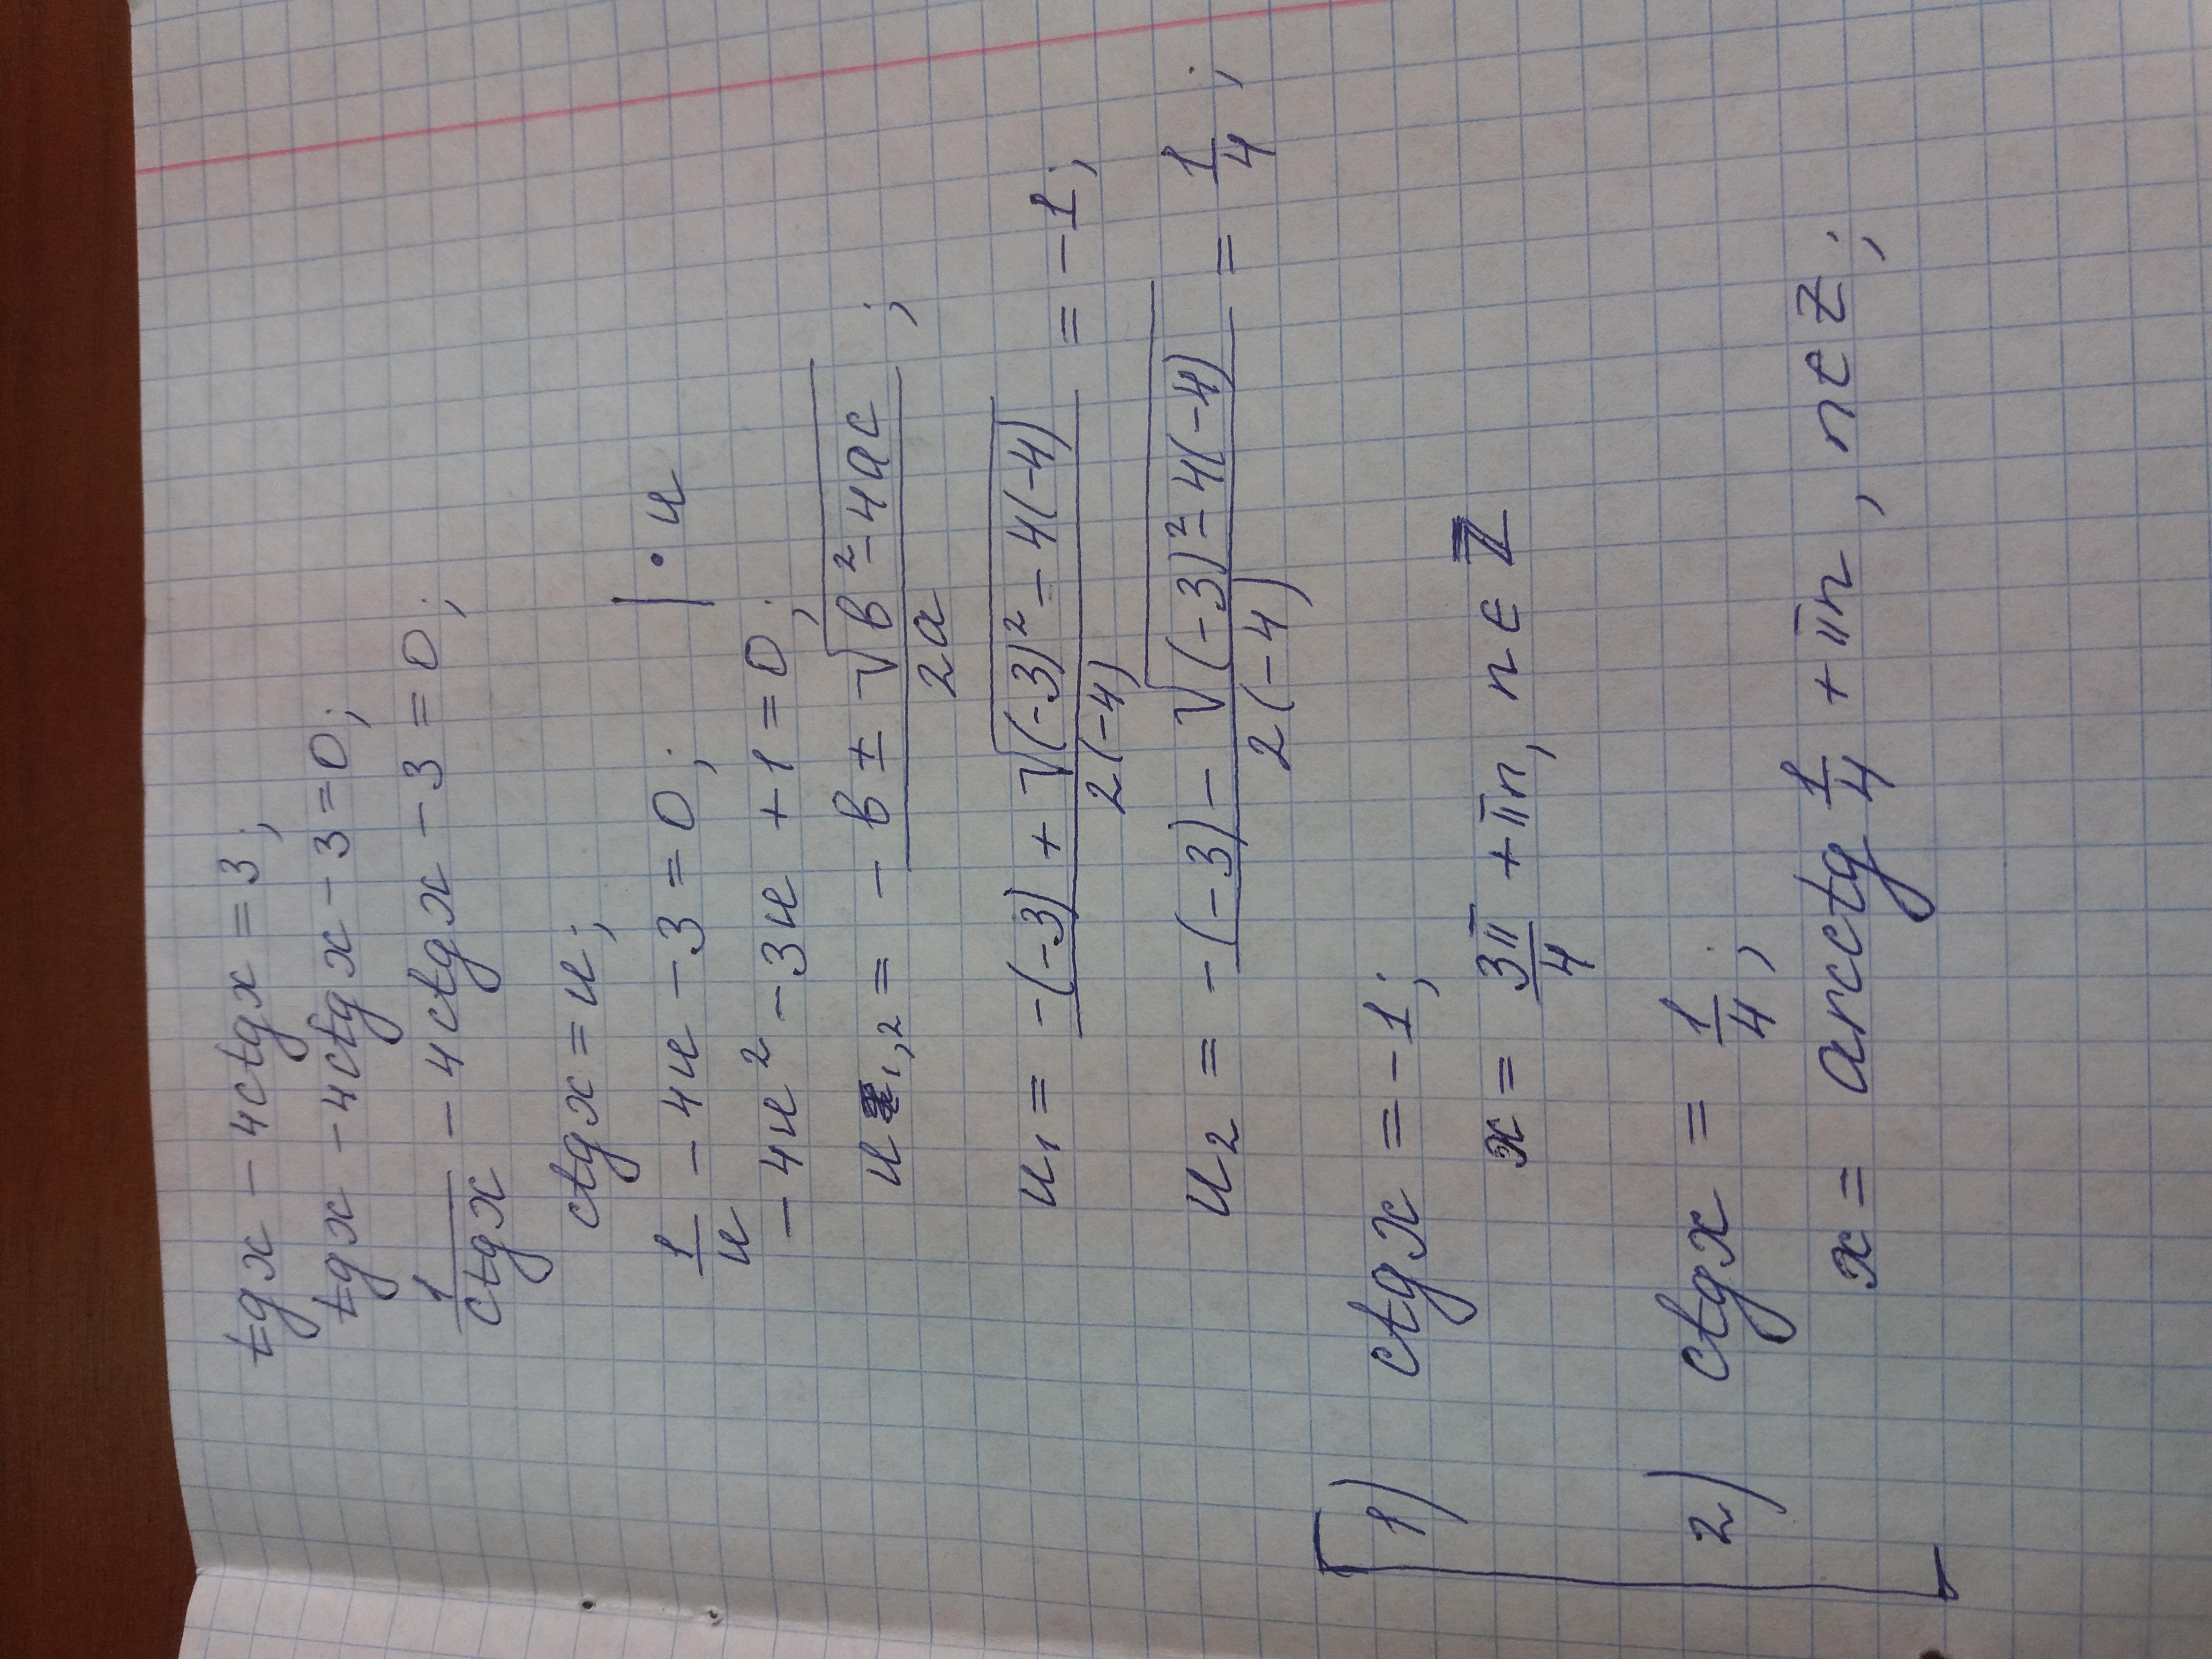 tg x - 4ctg x = 3;
tg x - 4ctg x - 3 = 0;
1/ctg x - 4ctg x - 3 = 0;
ctg x = u;
1/u - 4u - 3 = 0; | · u
-4u² - 3u + 1 = 0;
u₁,₂ = (-b ± √(b² - 4ac))/2a;
u₁ = (-(-3) + √((-3)² - 4(-4)))/2(-4) = -1;
u₂ = (-(-3) - √((-3)² - 4(-4)))/2(-4) = 1/4;
1) ctg x = -1;
x = 3π/4 + πn, n ∈ Z
2) ctg x = 1/4;
x = arcctg 1/4 + πn, n ∈ Z;